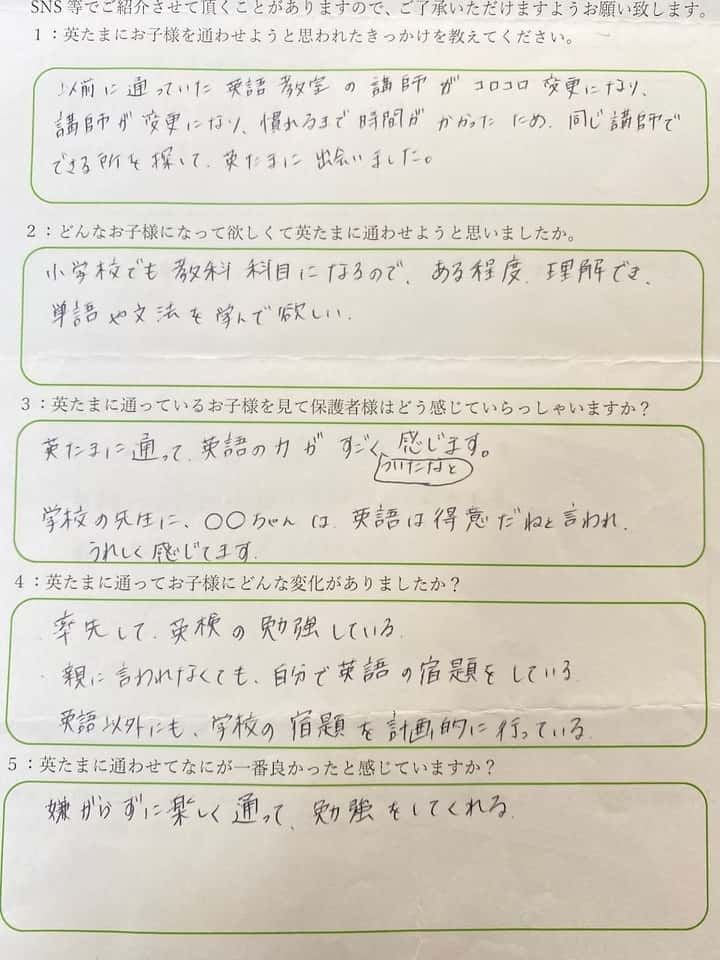 SNS 等でご紹介させて頂くことがありますので、ご了承いただけますようお願い致します。
1：英たまにお子様を通わせようと思われたきっかけを教えてください。
以前に通っていた英語教室の講師がコロコロ変更になり、
講師が変更になり、慣れるまで時間がかかったため、同じ講師で
できる所を探して、英たまに出会いました。
2：どんなお子様になって欲しくて英たまに通わせようと思いましたか。
小学校でも教科科目になるので、ある程度、理解でき、
単語や文法を学んで欲しい。
3：英たまに通っているお子様を見て保護者様はどう感じていらっしゃいますか？
英たまに通って、英語の力がすごく感じます。
ついたなと
学校の先生に、〇〇ちゃんは、英語は得意だねと言われ、
うれしく感じてます。
4：英たまに通ってお子様にどんな変化がありましたか？
・率先して、英検の勉強している。
・親に言われなくても、自分で英語の宿題をしている。
英語以外にも、学校の宿題を計画的に行っている。
5：英たまに通わせてなにが一番良かったと感じていますか？
嫌がらずに楽しく通って、勉強をしてくれる。